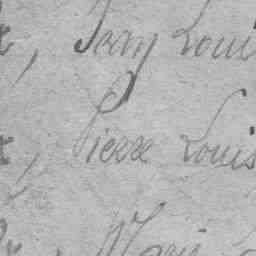 x, Jean Loui
x, Pierre Louis
x, Marie